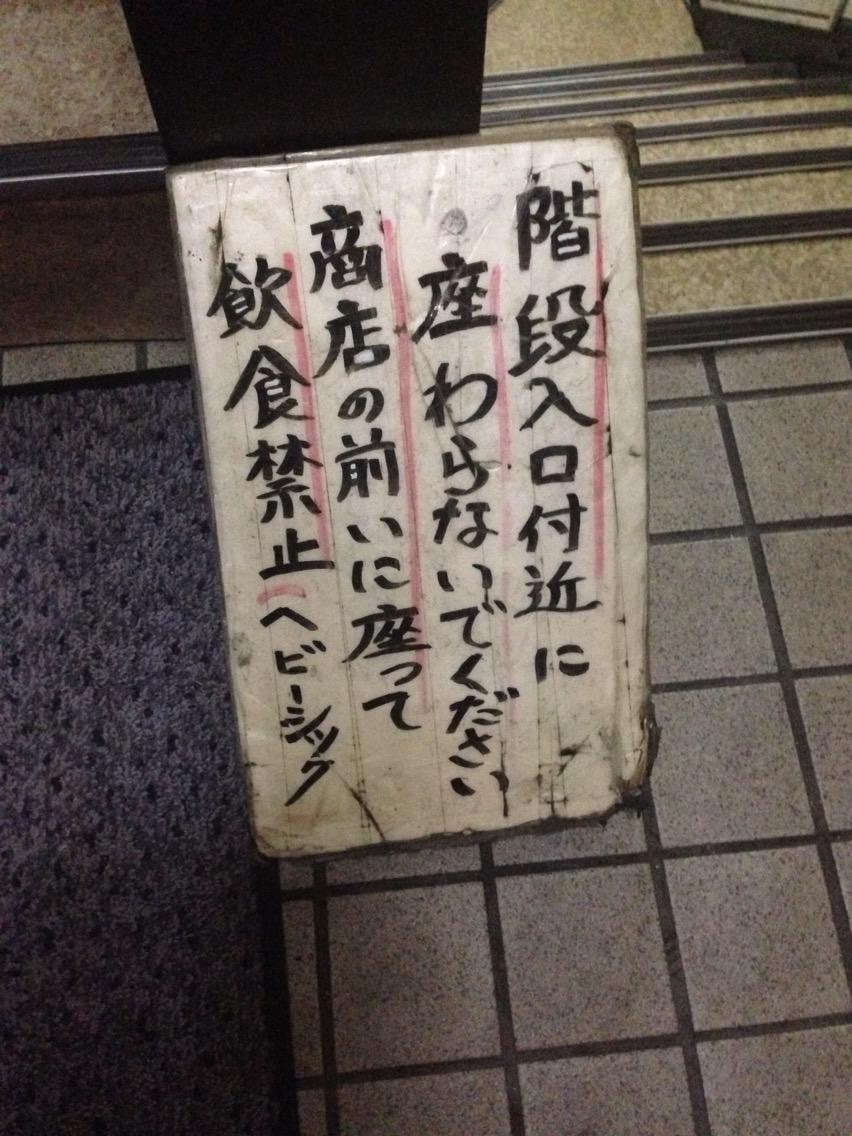 階段入口付近に
座わらないでください
商店の前いに座って
飲食禁止ヘビーシック